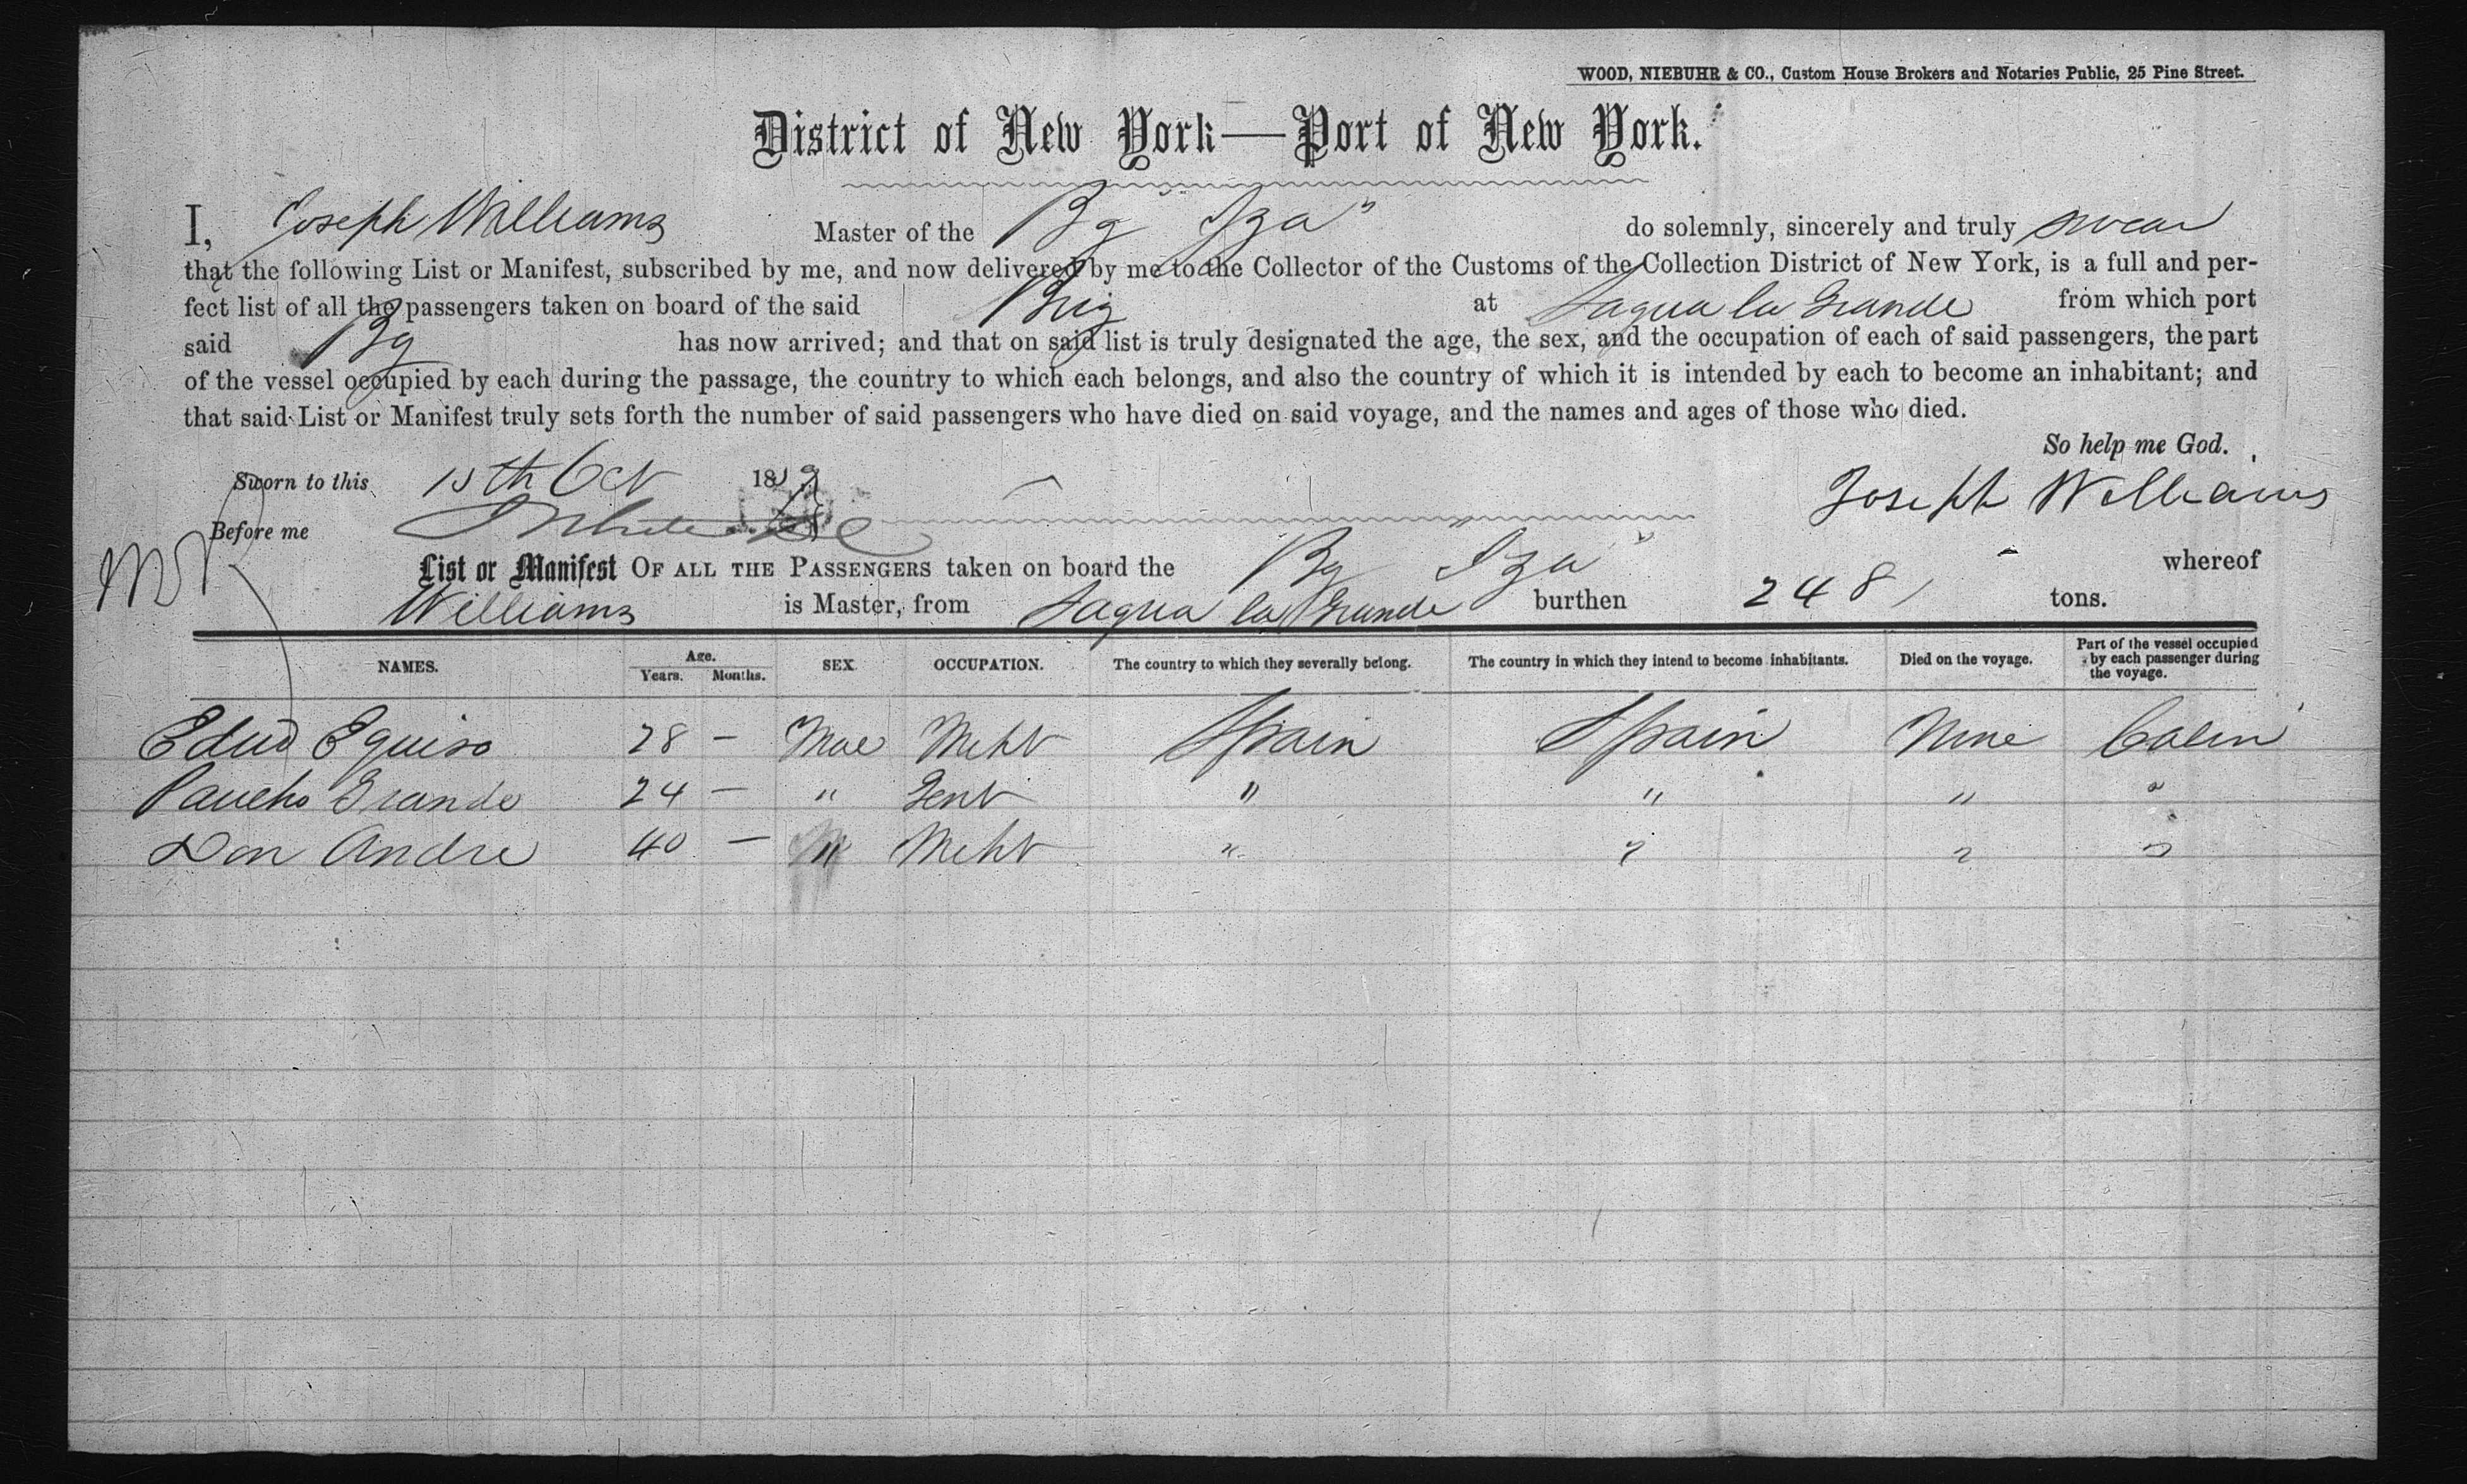 WOOD, NIEBUHR & CO., Custom House Brokers and Notaries Public, 25 Pine Street.
District of New York—Port of New York.
I, Joseph Williams Master of the Bg "Iza" do solemnly, sincerely and truly swear
that the following List or Manifest, subscribed by me, and now delivered by me to the Collector of the Customs of the Collection District of New York, is a full and per-
fect list of all the passengers taken on board of the said Brig at Sagua la Grande from which port
said Bg has now arrived; and that on said list is truly designated the age, the sex, and the occupation of each of said passengers, the part
of the vessel occupied by each during the passage, the country to which each belongs, and also the country of which it is intended by each to become an inhabitant; and
that said List or Manifest truly sets forth the number of said passengers who have died on said voyage, and the names and ages of those who died.
So help me God.
Sworn to this 15th Oct 18
Joseph Williams
Before me
List or Manifest OF ALL THE PASSENGERS taken on board the Bg "Iza" whereof
Williams is Master, from Sagua la Grande burthen 248 tons.
NAMES. Age. Years. Months. SEX. OCCUPATION. The country to which they severally belong. The country in which they intend to become inhabitants. Died on the voyage. Part of the vessel occupied by each passenger during the voyage.
Edud Equiso 28 — Mae Mcht Spain Spain None Cabin
Pancho Grande 24 — " Gent " " " "
Don Andre 40 — " Mcht " " " "